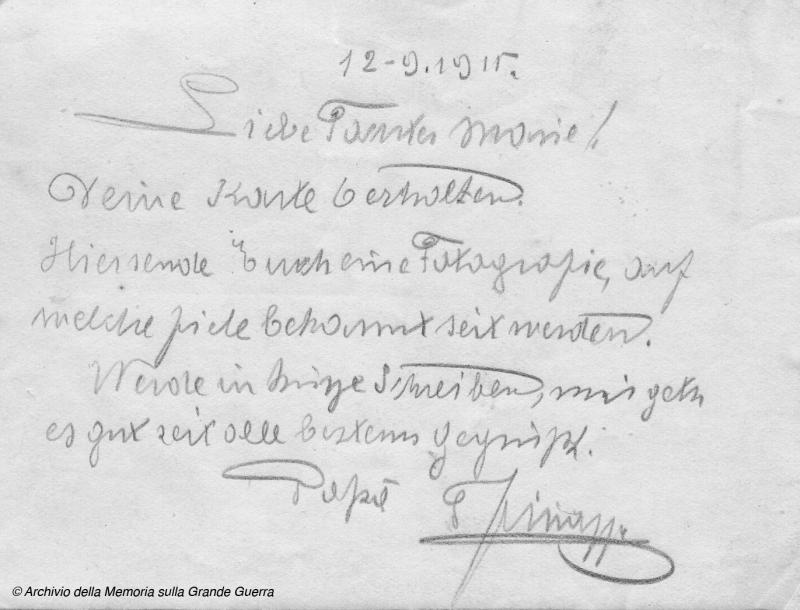 12-9.1915.
Liebe Tante Marie!
Deine Karte erhalten.
Hier sende Euch eine Fotografie, auf
welche viele bekannt seit werden.
Werde in kürze Schreiben, mir geth
es gut seit alle bestens gegrüßt.
© Archivio della Memoria sulla Grande Guerra